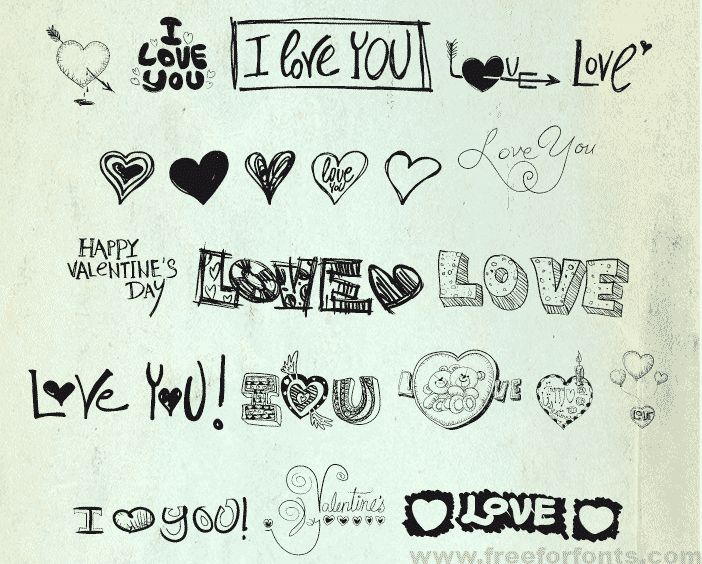 I LOVE YOU
I love YOU
LOVE
Love
love you
Love You
HAPPY
VALENTINE'S
DAY
LOVE
LOVE
LOVE YOU!
I U
L VE
LOVE
I YOU!
Valentine's
Day
LOVE
www.freeforfonts.com